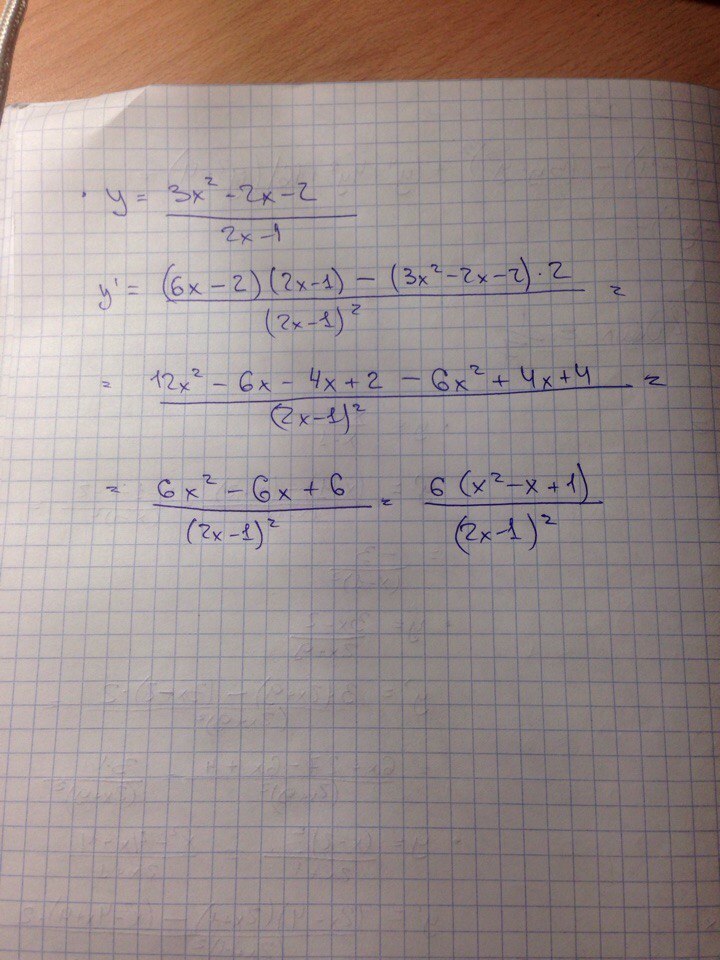 · y = (3x² - 2x - 2)/(2x - 1)
y' = ((6x - 2)(2x-1) - (3x² - 2x - 2) · 2)/((2x-1)²) =
= (12x² - 6x - 4x + 2 - 6x² + 4x + 4)/((2x-1)²) =
= (6x² - 6x + 6)/((2x-1)²) = (6(x² - x + 1))/((2x-1)²)